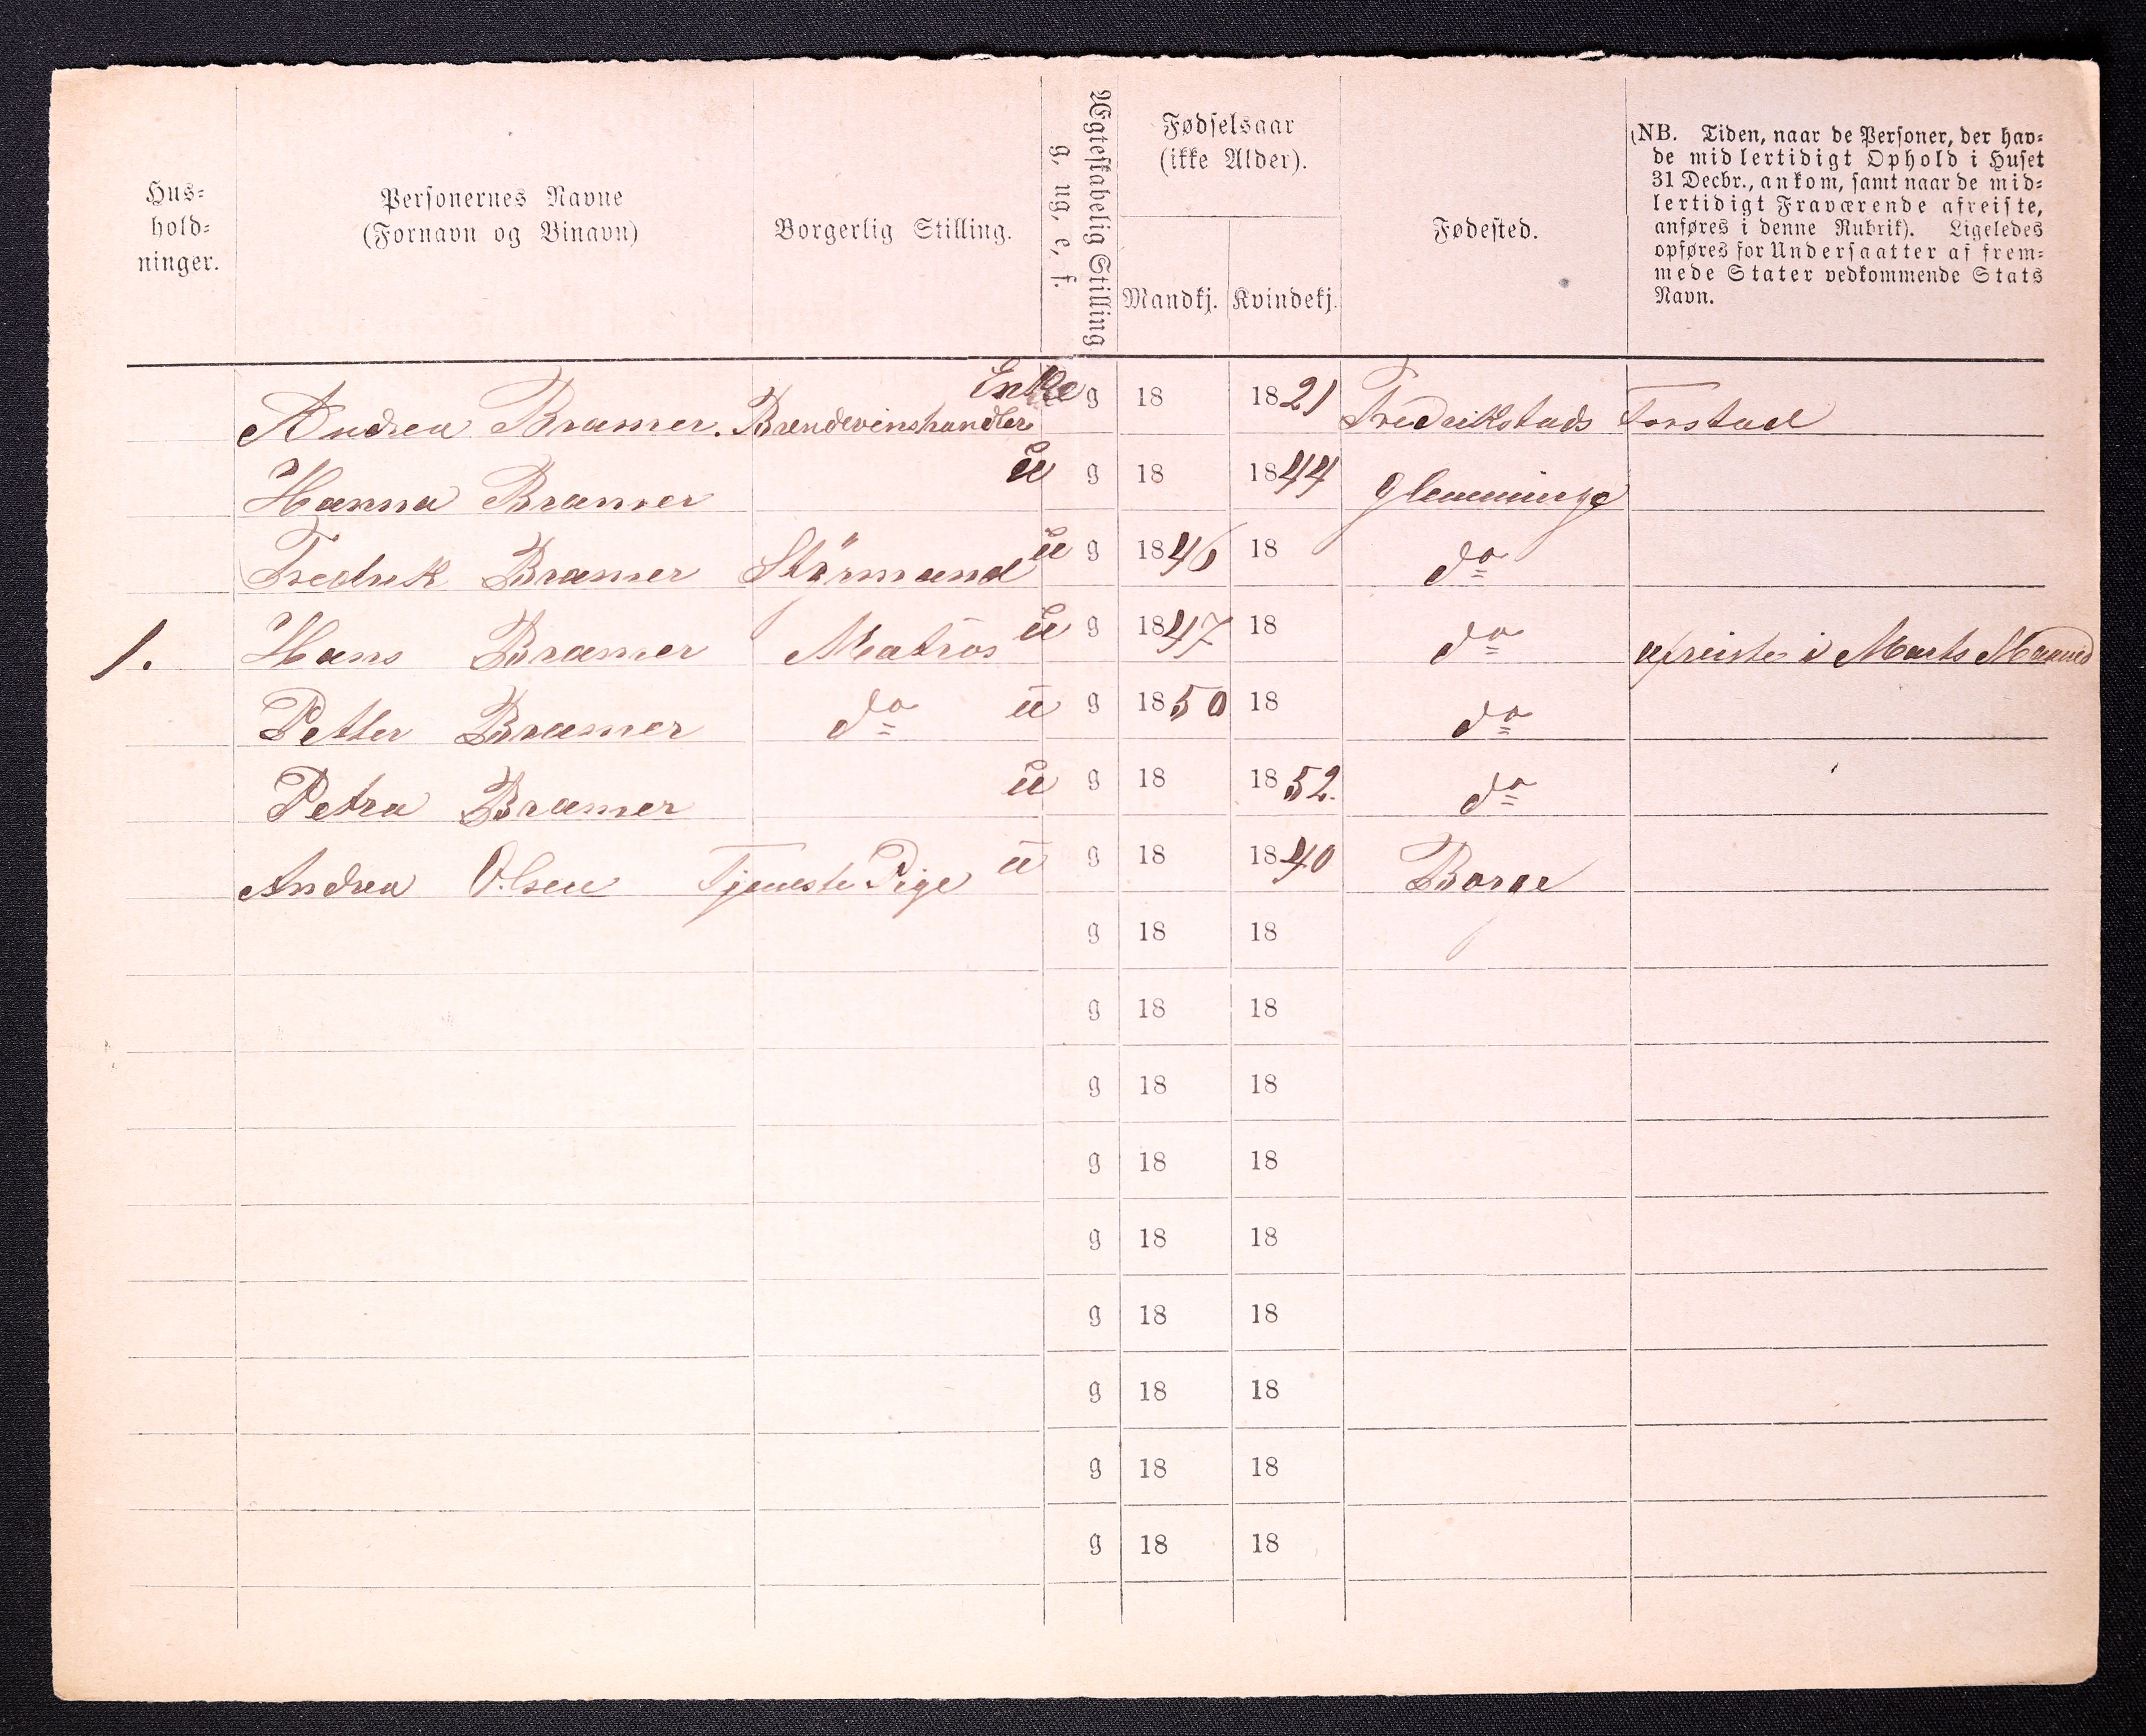 Hus-
hold-
ninger.
Personernes Navne
(Fornavn og Binavn)
Borgerlig Stilling.
Ægteskabelig Stilling
g, ug, e, f.
Fødselsaar
(ikke Alder).
Mandkj. Kvindekj.
Fødested.
(NB. Tiden, naar de Personer, der hav-
de midlertidigt Ophold i Huset
31 Decbr., ankom, samt naar de mid-
lertidigt Fraværende afreiste,
anføres i denne Rubrik). Ligeledes
opføres for Undersaatter af frem-
mede Stater vedkommende Stats
Navn.
Andrea Bramer. Brændevinshandler Enke g 18 1821 Fredrikstads Forstad
Hanna Bramer u g 18 1844 Glemminge
Fredrik Bramer Stÿrmand u g 1846 18 do
1. Hans Bramer Matros u g 1847 18 do afreiste i Marts Maaned
Petter Bramer do u g 1850 18 do
Petra Bramer u g 18 1852. do
Andrea Olsen Tjeneste Pige u g 18 1840 Borge
g 18 18
g 18 18
g 18 18
g 18 18
g 18 18
g 18 18
g 18 18
g 18 18
g 18 18